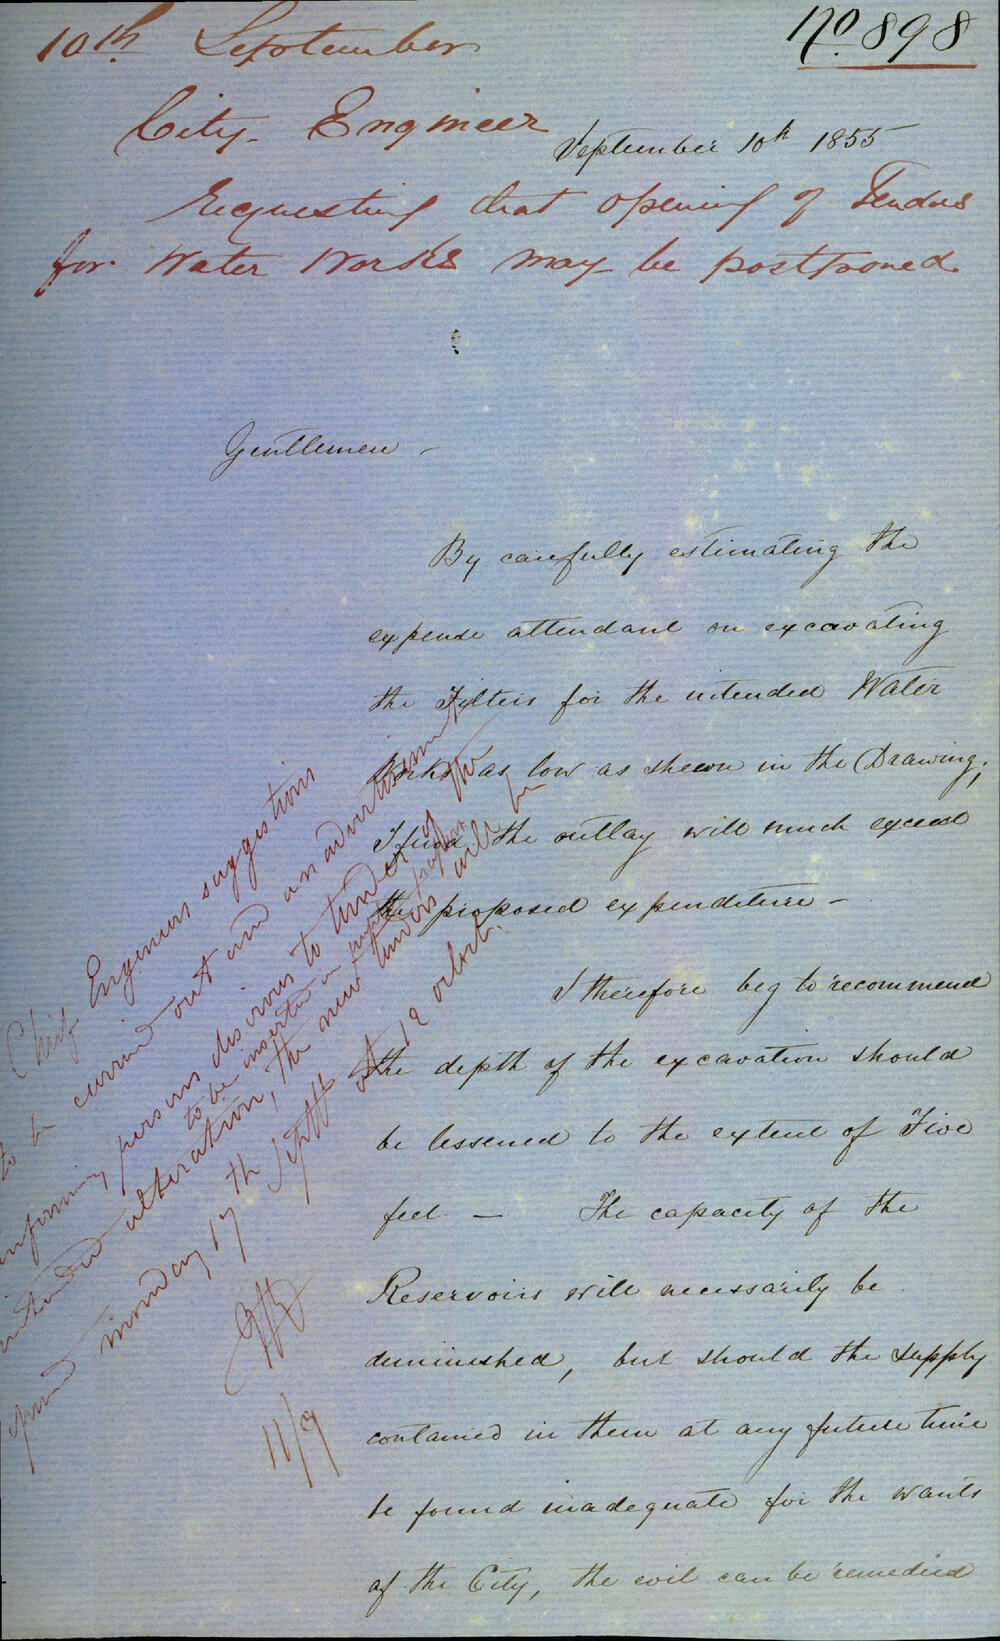 No. 898
10th September
City Engineer
September 10th 1855
Requesting that opening of Tenders
for Water Works may be postponed
Gentlemen -
By carefully estimating the
expense attendant on excavating
the Filters for the intended Water
Works as low as shewn in the Drawing,
I find the outlay will much exceed
the proposed expenditure -
I therefore beg to recommend
the depth of the excavation should
be lessened to the extent of Five
feet - The capacity of the
Reservoirs will necessarily be
diminished, but should the supply
contained in them at any future time
be found inadequate for the wants
of the City, the evil can be remedied
Chief Engineers suggestions
to be carried out and an advertisement
to be inserted in papers
informing persons desirous to tender of the
intended alteration, the new tenders will be
opened monday 17th Septr at 12 oclock.
11/9